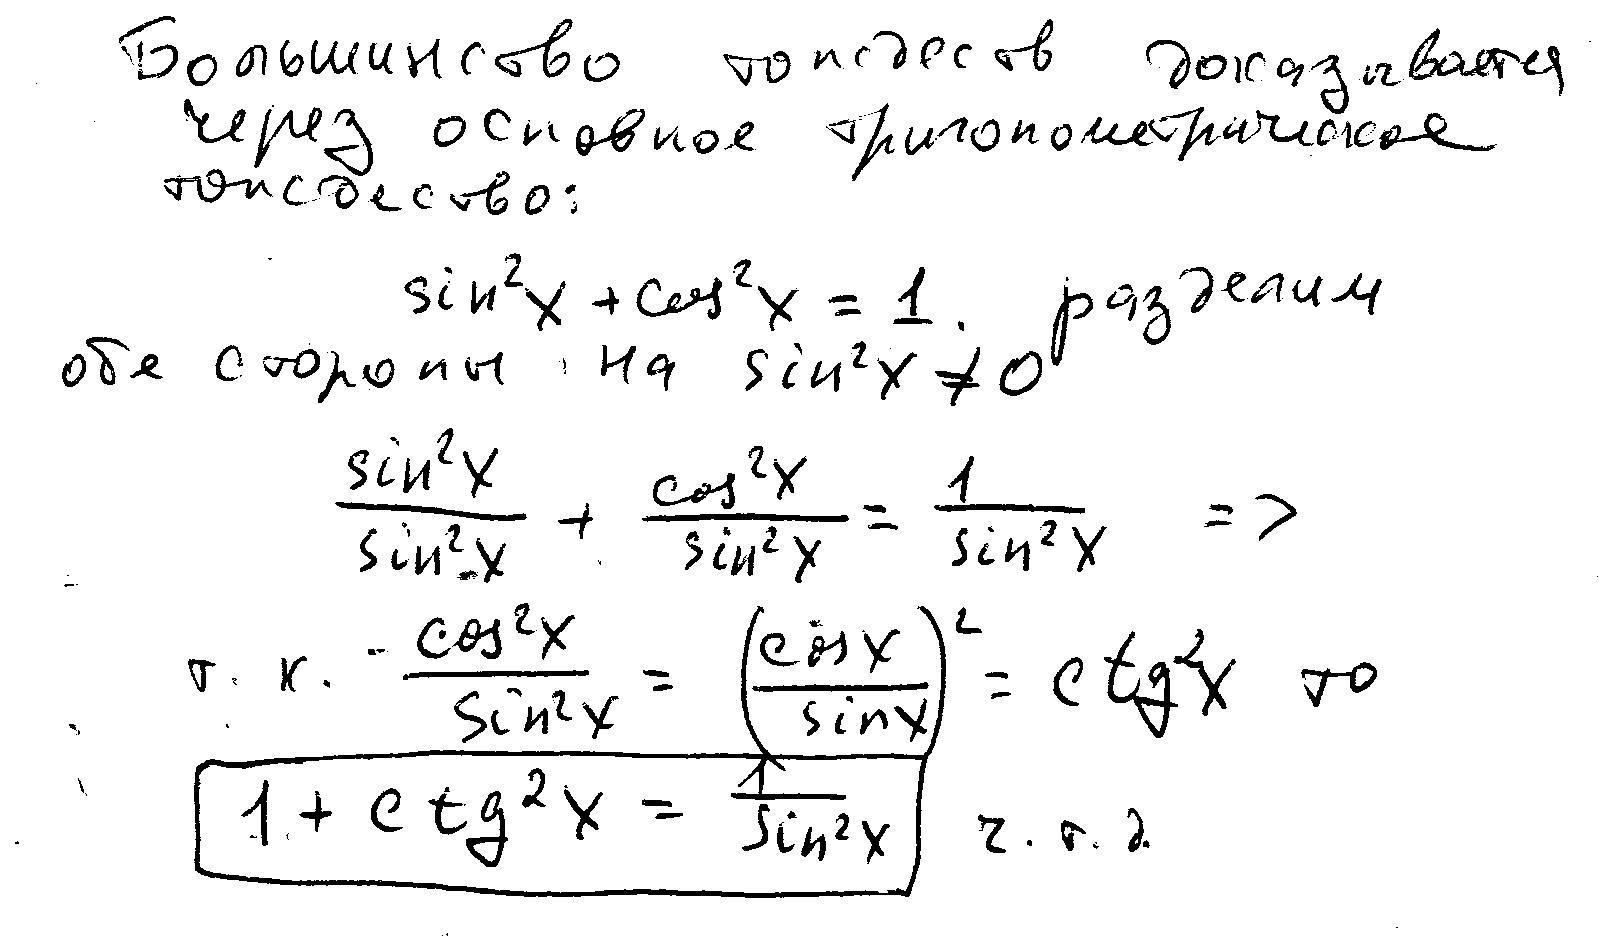 Большинство тождеств доказывается
через основное тригонометрическое
тождество:
sin²x + cos²x = 1. разделим
обе стороны на sin²x ≠ 0
sin²x/sin²x + cos²x/sin²x = 1/sin²x =>
т. к. cos²x/sin²x = (cosx/sinx)² = ctg²x то
1 + ctg²x = 1/sin²x ч.т.д.